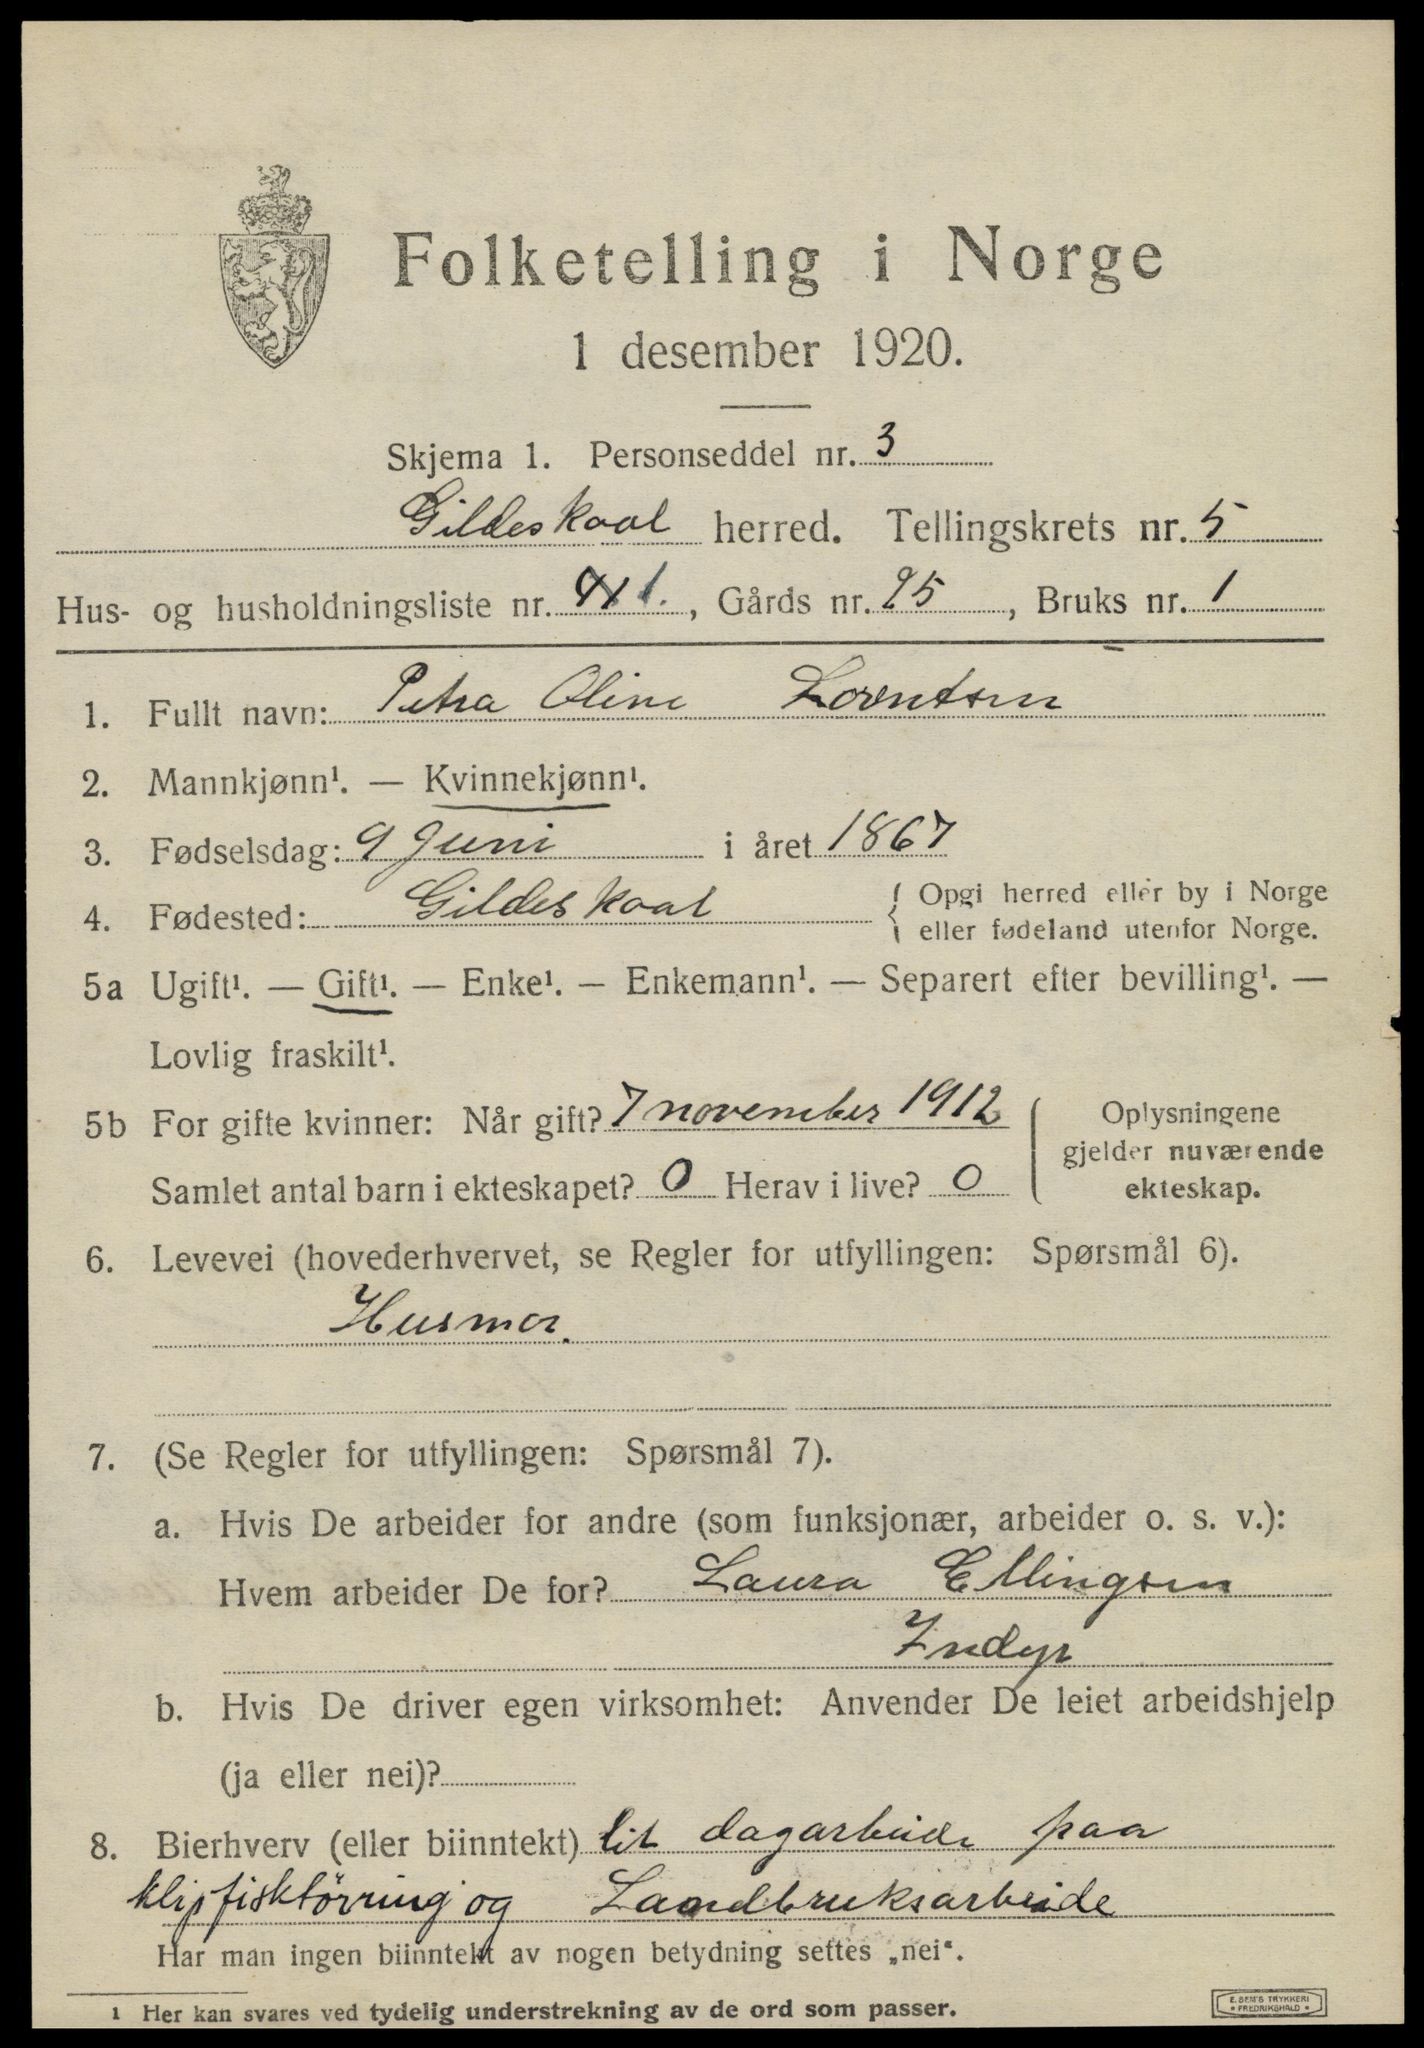 Folketelling i Norge
1 desember 1920.
Skjema 1. Personseddel nr. 3
Gildeskaal herred. Tellingskrets nr. 5
Hus- og husholdningsliste nr. 1., Gårds nr. 25, Bruks nr. 1
1. Fullt navn: Petra Oline Lorentsen
2. Mannkjønn¹. — Kvinnekjønn¹.
3. Fødselsdag: 9 Juni i året 1867
4. Fødested: Gildeskaal { Opgi herred eller by i Norge
eller fødeland utenfor Norge.
5a Ugift¹. — Gift¹. — Enke¹. — Enkemann¹. — Separert efter bevilling¹. —
Lovlig fraskilt¹.
5b For gifte kvinner: Når gift? 7 november 1912
Samlet antal barn i ekteskapet? 0 Herav i live? 0
Oplysningene
gjelder nuværende
ekteskap.
6. Levevei (hovederhvervet, se Regler for utfyllingen: Spørsmål 6).
Husmor.
7. (Se Regler for utfyllingen: Spørsmål 7).
a. Hvis De arbeider for andre (som funksjonær, arbeider o. s. v.):
Hvem arbeider De for? Laura Ellingsen
Indyr
b. Hvis De driver egen virksomhet: Anvender De leiet arbeidshjelp
(ja eller nei)?
8. Bierhverv (eller biinntekt) lit dagarbeide paa
klipfisktörring og Landbruksarbeide
Har man ingen biinntekt av nogen betydning settes „nei“.
1 Her kan svares ved tydelig understrekning av de ord som passer.
E. SEM'S TRYKKERI
• FREDRIKSHALD •